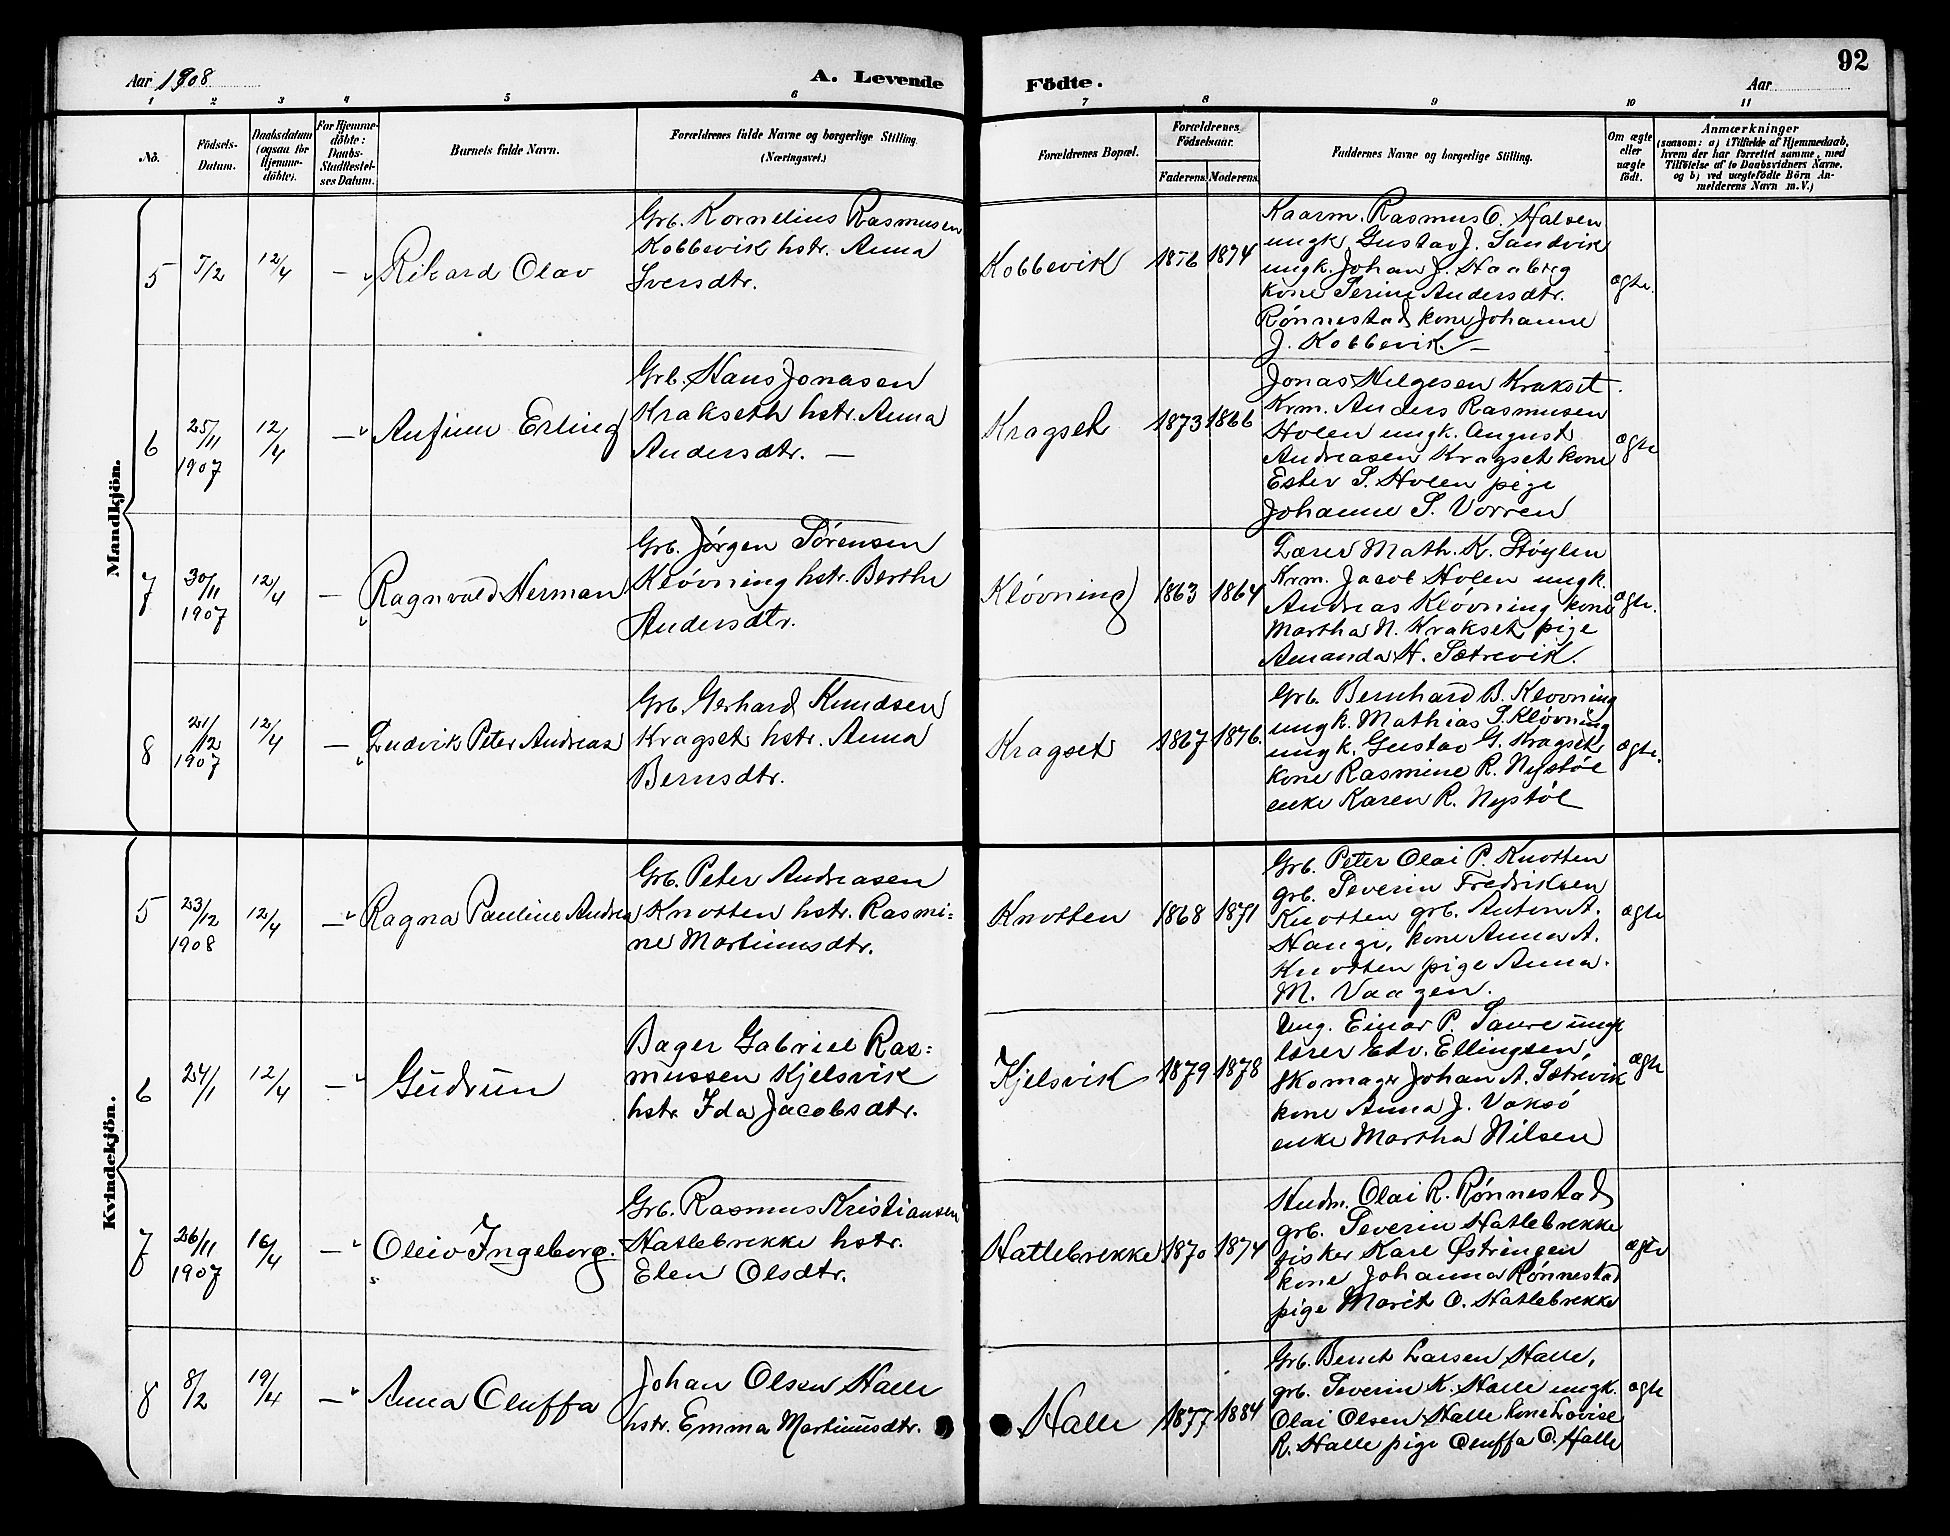 Aar 1908
A. Levende Födte.
Aar
92
1 2 3 4 5 6 7 8 9 10 11
No.
Födsels-Datum.
Daabsdatum (ogsaa för Hjemme-döbte).
For Hjemme-döbte: Daabs-Stadfæstel-ses Datum.
Barnets fulde Navn.
Forældrenes fulde Navne og borgerlige Stilling. (Næringsvei.)
Forældrenes Bopæl.
Forældrenes Födselsaar.
Faderens. Moderens.
Faddernes Navne og borgerlige Stilling.
Om ægte eller uægte födt.
Anmærkninger
(saasom: a) i Tilfælde af Hjemmedaab, hvem der har forrettet samme, med Tilföielse af to Daabsvidners Navne. og b) ved uægtefödte Börn An-melderens Navn m.V.)
Mandkjön.
5 5/2 12/4 — Rikard Olav
Grb. Kornelius Rasmusen
Kobbevik hstr. Anna
Iversdtr.
Kobbevik 1876 1874
Kaarm. Rasmus O. Halsen
ungk. Gustav J. Sandvik
ungk. Johan J. Haaberg
kone Serine Andersdtr.
Rönnestad kone Johanne
J. Kobbevik. —
ægte.
6 25/11 1907 12/4 — Anfinn Erling
Grb. Hans Jonasen
Krakseth hstr. Anna
Andersdtr. —
Kragset 1873 1866
Jonas Helgesen Krakset.
Krm. Anders Rasmusen
Holen ungk. August
Andreasen Kragset kone
Ester S. Holen pige
Johanne S. Vorren
ægte
7 30/11 1907 12/4 — Ragnvald Herman
Grb. Jørgen Sørensen
Kløvning hstr. Berthe
Andersdtr.
Kløvning 1863 1864
Lærer Math. K. Støylen
Krm. Jacob Holen ungk.
Andreas Kløvning kone
Martha N. Krakset pige
Amanda H. Sætrevik.
ægte.
8 21/12 1907 12/4 — Ludvik Peter Andreas
Grb. Gerhard Knudsen
Kragset hstr. Anna
Bernsdtr.
Kragset 1867 1876.
Grb. Bernhard B. Kløvning
ungk. Mathias S. Kløvning
ungk. Gustav G. Kragset
kone Rasmine R. Nystøl
enke Karen R. Nystöl
ægte.
Kvindekjön.
5 23/12 1908 12/4 — Ragna Pauline Andrea
Grb. Peter Andreasen
Knotten hstr. Rasmi=
ne Martinusdtr.
Knotten 1868 1871
Grb. Peter Olai P. Knotten
grb. Severin Fredriksen
Knotten grb. Anton A.
Hauge, kone Anna A.
Knotten pige Anna
M. Vaagen.
ægte
6 24/1 12/4 — Gudrun
Bager Gabriel Ras=
mussen Kjelsvik
hstr. Ida Jacobsdtr.
Kjelsvik 1879 1878
Ung. Einar P. Saure ungk
lærer Edv. Ellingsen,
skomager Johan A. Sætrevik
kone Anna J. Vaksö
enke Martha Nilsen
ægte
7 26/11 1907 16/4 — Oleiv Ingeborg.
Grb. Rasmus Kristiansen
Hatlebrekke hstr.
Elen Olsdtr.
Hatlebrekke 1870 1874
Husm. Olai R. Rönnestad
grb. Severin Hatlebrekke
fisker Karl Østringen
kone Johanna Rönnestad
pige Marit O. Hatlebrekke
ægte
8 8/2 19/4 — Anna Oluffa
Johan Olsen Halle
hstr. Emma Martinusdtr.
Halle 1877 1884
Grb. Bernt Larsen Halle,
grb. Severin K. Halle ungk.
Olai Olsen Halle kone Lovise
R. Halle pige Oluffa O. Halle
ægte